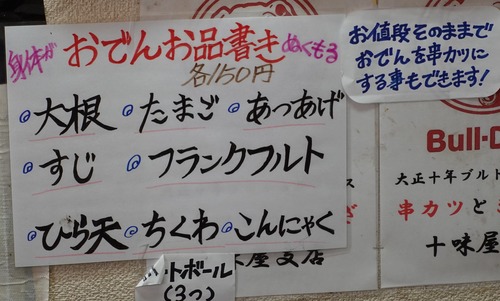 身体が おでんお品書き ぬくもる
各150円
大根 たまご あつあげ
すじ フランクフルト
ひら天 ちくわ こんにゃく
トボール
(3つ)
お値段そのままで
おでんを串カツに
する事もできます!
Bull-D
大正十年ブルト
串カツと
十味屋
味屋支店